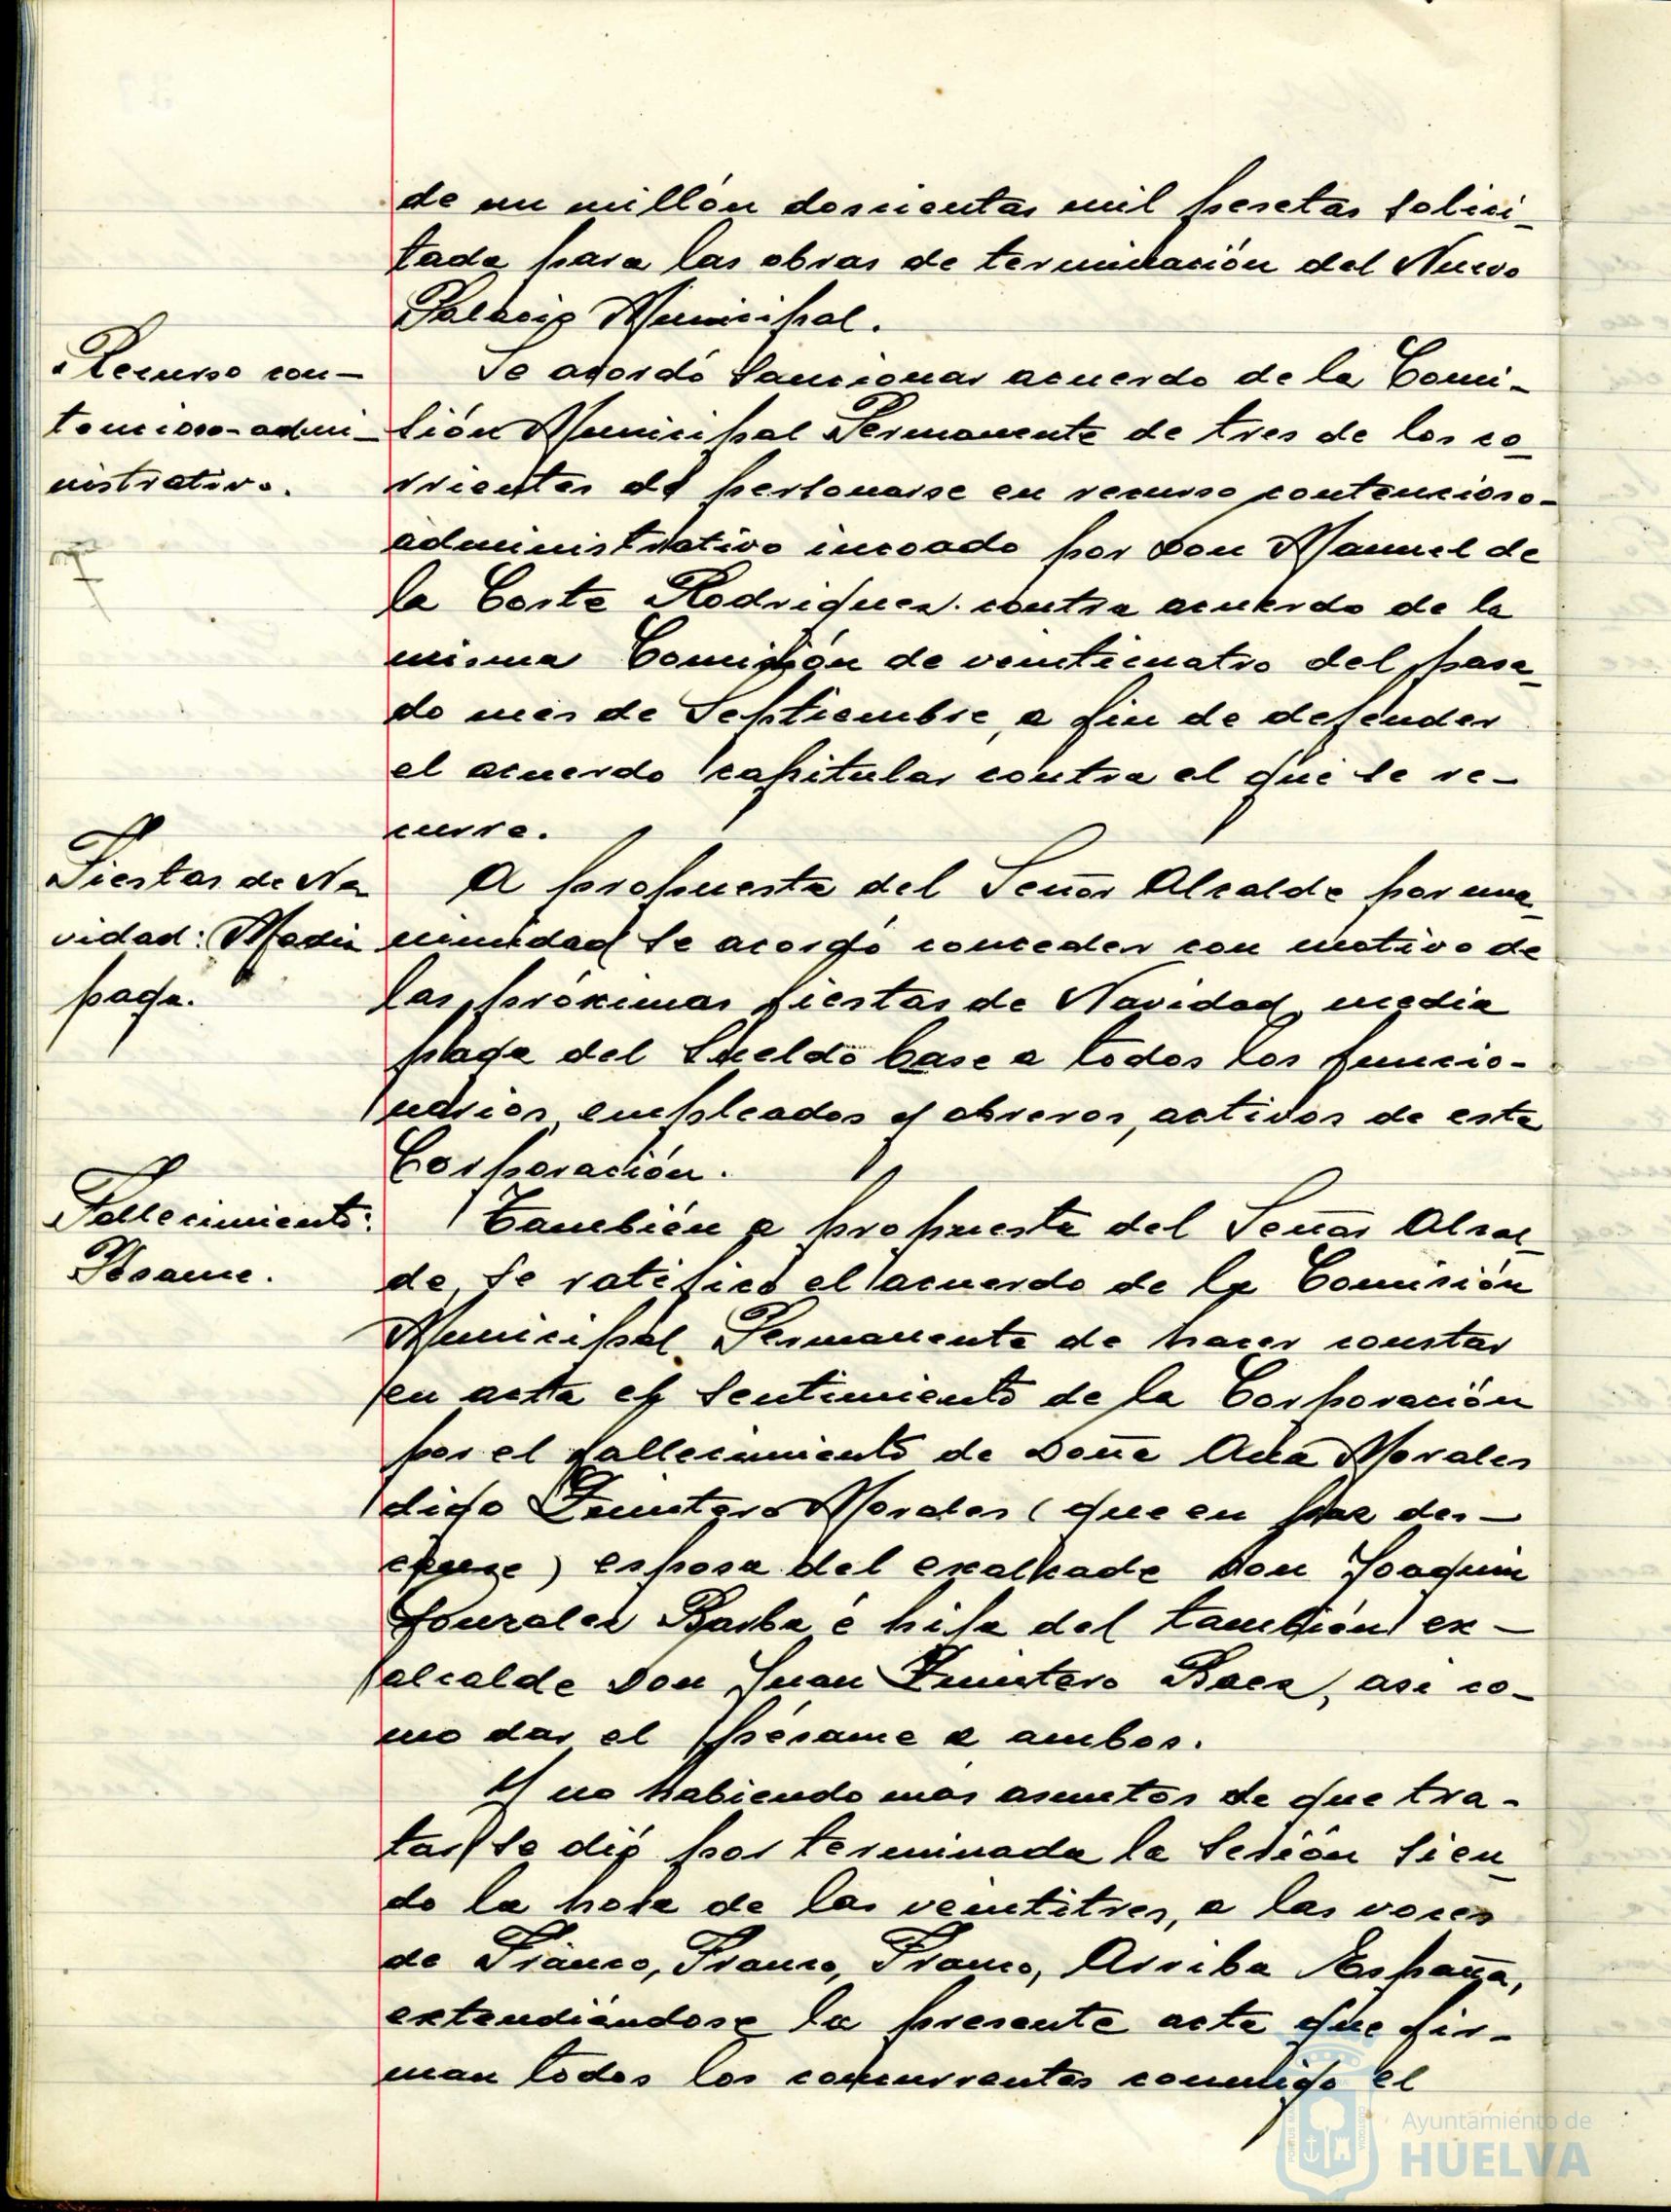 de un millón doscientas mil pesetas solici-
tada para las obras de terminación del Nuevo
Palacio Municipal.
Recurso con-
tencioso-admi-
nistrativo.
Se acordó sancionar acuerdo de la Comi-
sión Municipal Permanente de tres de los co-
rrientes de personarse en recurso contencioso-
administrativo incoado por Don Manuel de
la Corte Rodriguez contra acuerdo de la
misma Comisión de veinticuatro del pasa-
do mes de Septiembre, a fin de defender
el acuerdo capitular contra el que se re-
curre.
Fiestas de Na-
vidad: Media
paga.
A propuesta del Señor Alcalde por una-
nimidad se acordó conceder con motivo de
las próximas fiestas de Navidad, media
paga del sueldo base a todos los funcio-
narios, empleados y obreros, activos de esta
Corporación.
Fallecimiento:
Pésame.
También a propuesta del Señor Alcal-
de, se ratificó el acuerdo de la Comisión
Municipal Permanente de hacer constar
en acta el sentimiento de la Corporación
por el fallecimiento de Doña Ana Morales
digo Quintero Morales (que en paz des-
canse) esposa del exalcade Don Joaquin
Gonzalez Barba é hija del también ex-
alcalde Don Juan Quintero Baez, asi co-
mo dar el pésame a ambos.
Y no habiendo mas asuntos de que tra-
tar se dió por terminada la sesión sien-
do la hora de las veintitres, a las voces
de Franco, Franco, Franco, Arriba España,
extendiéndose la presente acta que fir-
man todos los concurrentes conmigo el
Ayuntamiento de
HUELVA